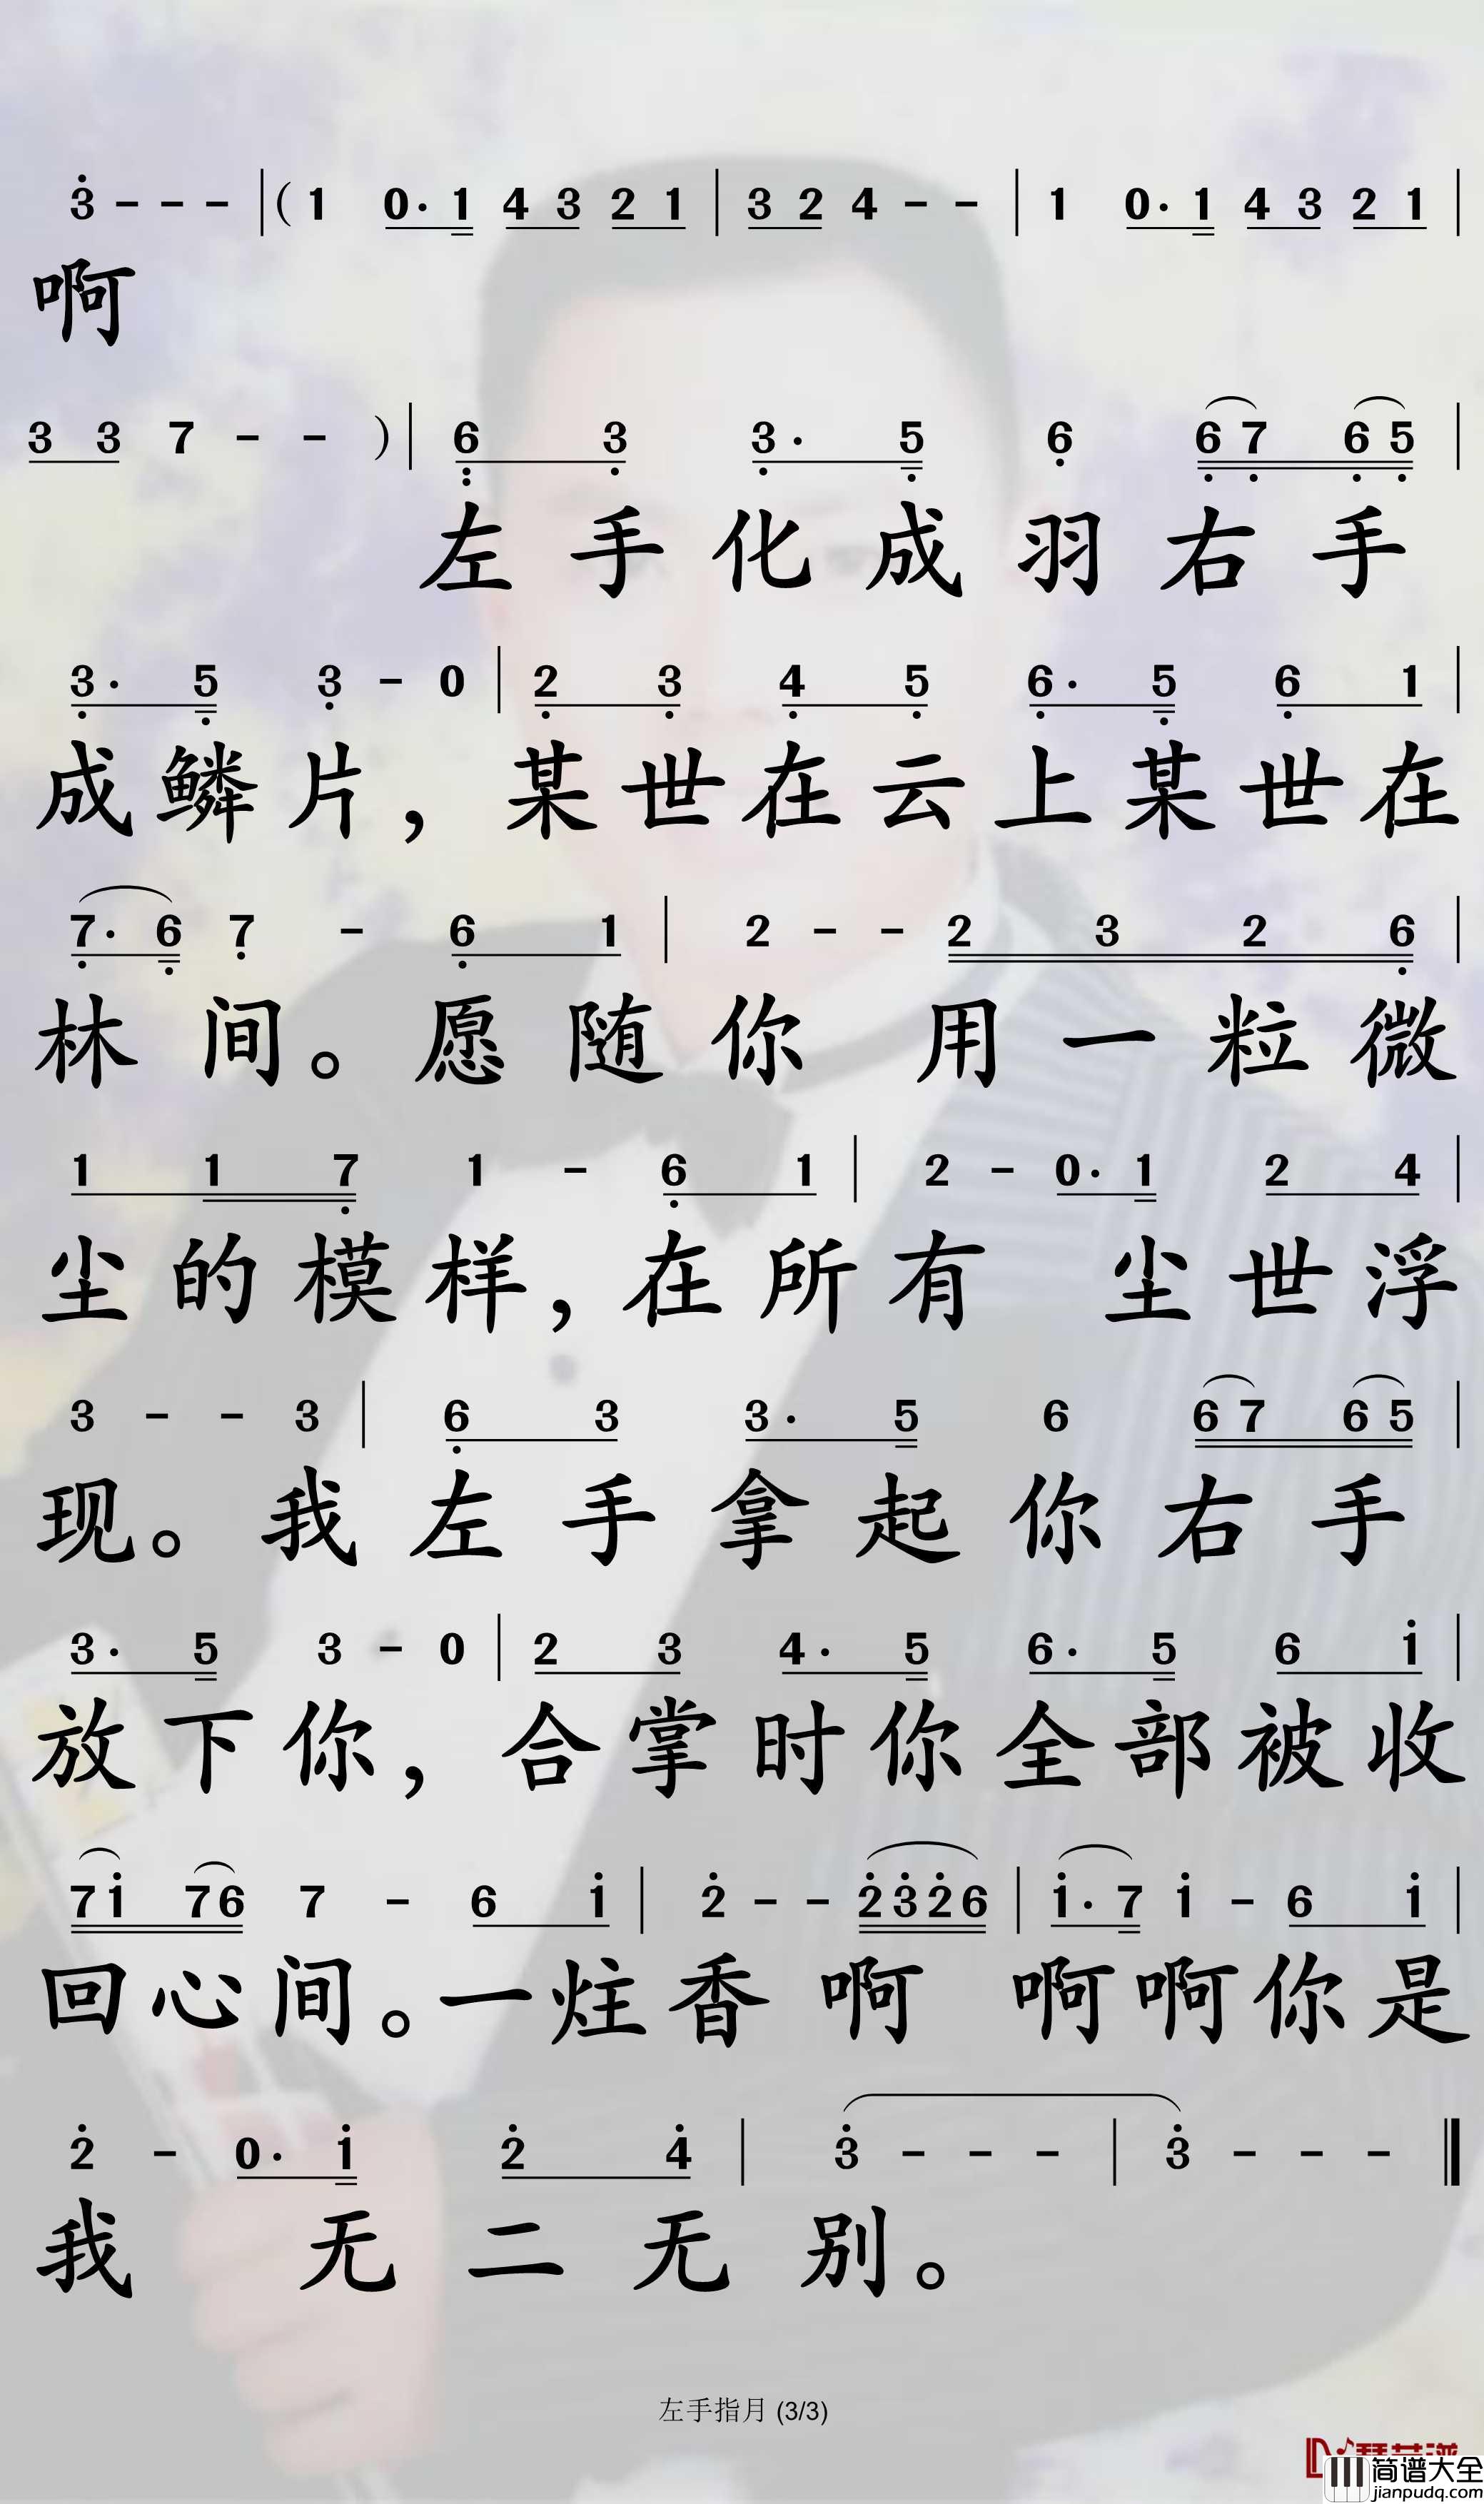 3 - - - | ( 1 0· 1 4 3 2 1 | 3 2 4 - - | 1 0· 1 4 3 2 1 |
啊
3 3 7 - - ) | 6 3 3· 5 6 6 7 6 5 |
左手化成羽右手
3· 5 3 - 0 | 2 3 4 5 6· 5 6 1 |
成鳞片，某世在云上某世在
7· 6 7 - 6 1 | 2 - - 2 3 2 6 |
林间。愿随你 用一粒微
1 1 7 1 - 6 1 | 2 - 0· 1 2 4 |
尘的模样，在所有 尘世浮
3 - - 3 | 6 3 3· 5 6 6 7 6 5 |
现。我左手拿起你右手
3· 5 3 - 0 | 2 3 4· 5 6· 5 6 1 |
放下你，合掌时你全部被收
7 1 7 6 7 - 6 1 | 2 - - 2 3 2 6 | 1· 7 1 - 6 1 |
回心间。一炷香啊 啊啊你是
2 - 0· 1 2 4 | 3 - - - | 3 - - - ‖
我 无二无别。
左手指月 (3/3)
简谱大全
jianpudq.com